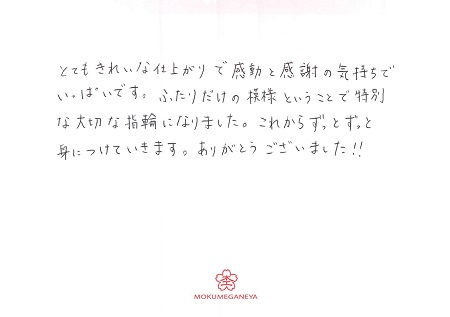 とてもきれいな仕上がりで感動と感謝の気持ちで
いっぱいです。ふたりだけの模様ということで特別
な大切な指輪になりました。これからずっとずっと
身につけていきます。ありがとうございました!!
杢
MOKUMEGANEYA